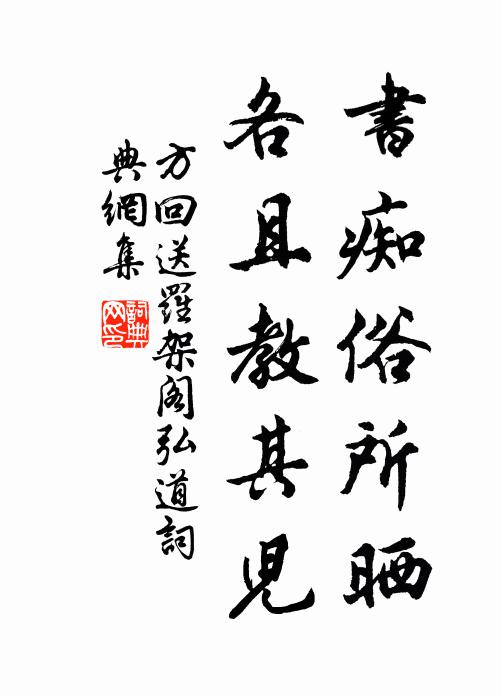 書痴俗所晒
各且教其児
方回送羅架阁弘道詞
典網集
詞典
网印